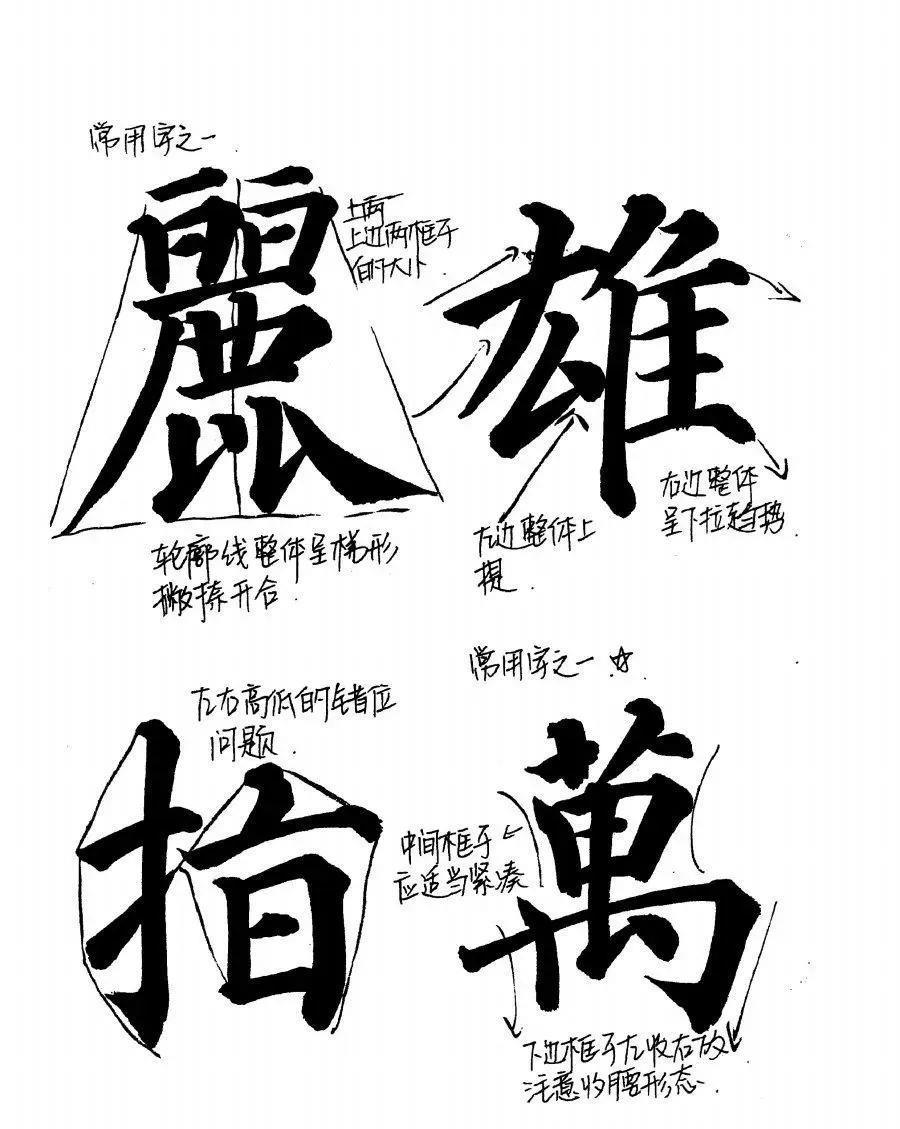 常用字之一
麗
上两
上边两框子
的大小
轮廓线整体呈梯形
撇捺开合.
雄
左边整体上
提.
右边整体
呈下拉趋势
左右高低的错位
问题.
指
常用字之一
萬
中间框子
应适当紧凑
下边框子左收右放
注意收腰形态.